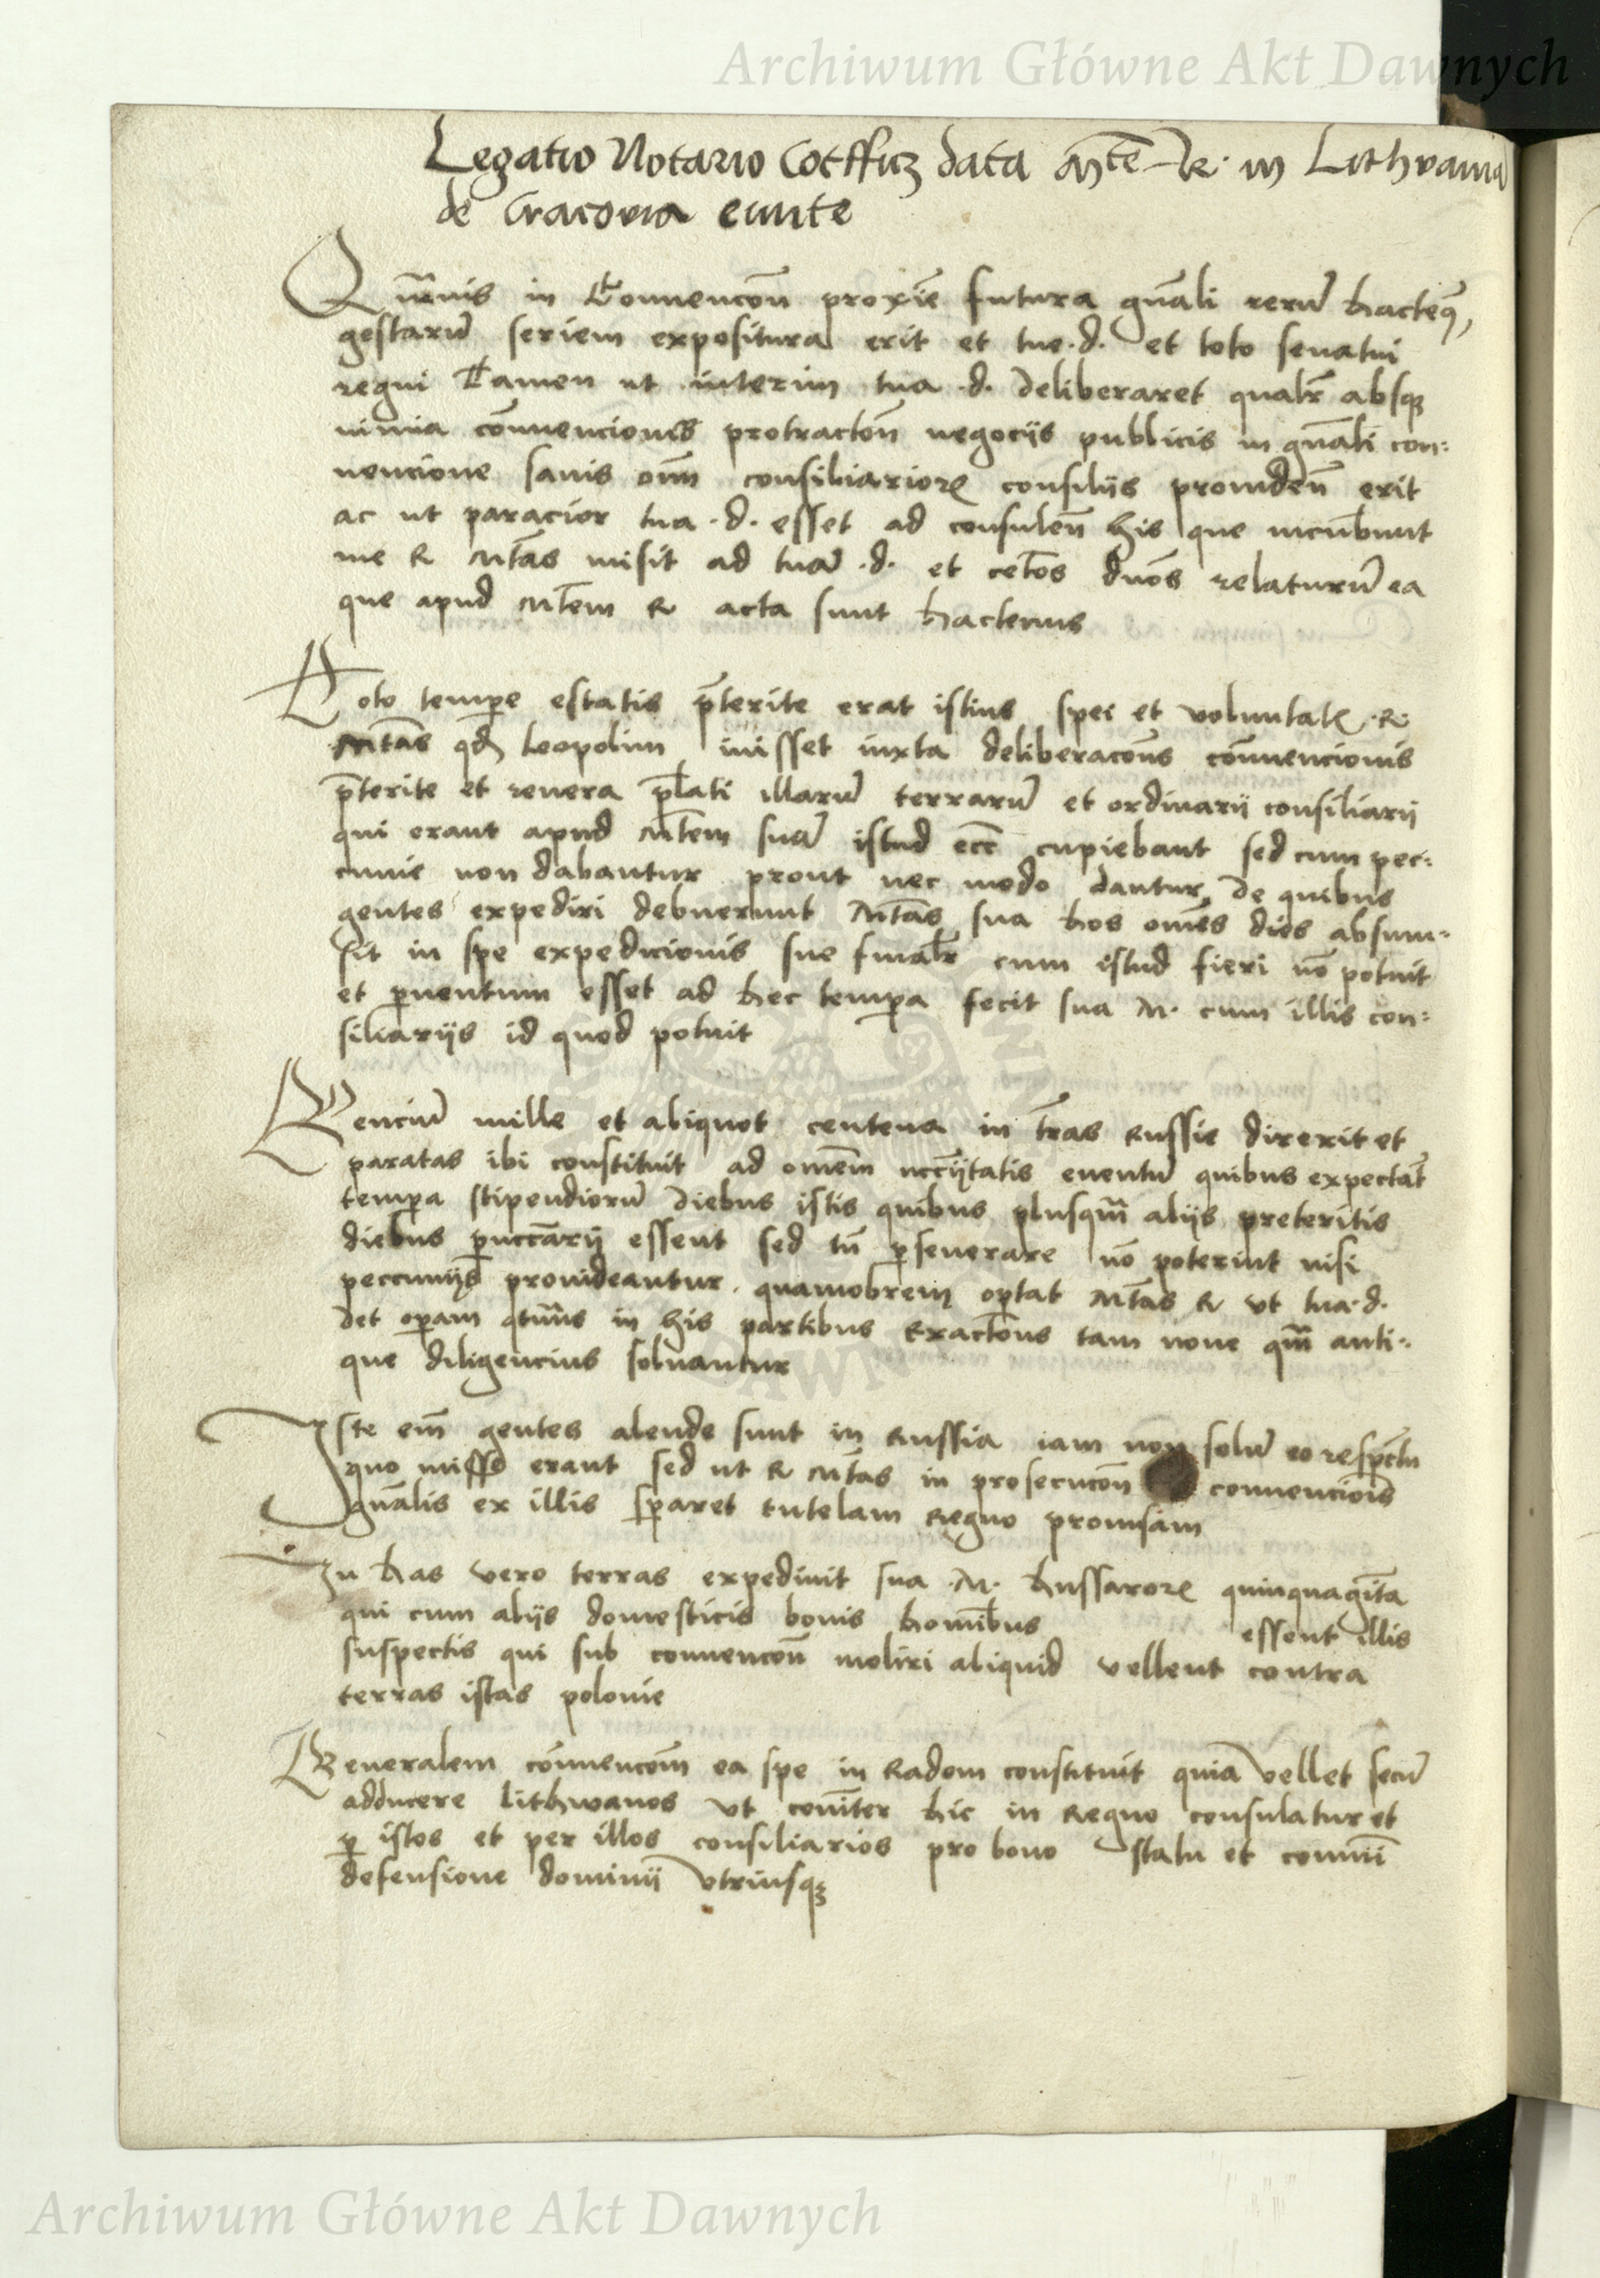 Archiwum Główne Akt Dawnych
Legatio Notario Cotfficz data Mte R. in Lithvania
de Cracovia eunte
Qua͞uis in Conuenco͞n proxi͞e futura gn͞ali reru͞ hacten9
gestaru͞ seriem expositura erit et tue .d. et toto senatui
regni Tamen ut interim tua .d. deliberaret qualr͞ absqꝫ
nimia co͞nuencionis protracto͞n negociis publicis in gn͞ali con:
nencione sanis om͞m consiliarioꝝ consiliis prouiden͞ erit
ac ut paracior tua .d. esset ad consulen͞ his que incu͞bunt
me R M͞tas misit ad tua͞ .d. et cet͞os dn͞os relaturu͞ ea
que apud M͞tem R acta sunt hactenus
Toto temꝑe estatis p͞terite erat istius spei et voluntatꝭ .R.
M͞tas qd͞ Leopolim iuisset iuxta deliberaco͞ns co͞nuencionis
p͞terite et revera p͞lati illaru͞ terraru͞ et ordinarii consiliarii
qui erant apud M͞tem sua͞ istud ec͞c cupiebant sed cum pec:
cunie non dabantur prout nec modo dantur, de quibus
gentes expediri debuerunt M͞tas sua hos om͞es dies absum:
sit in spe expedicionis sue finalr͞ cum istud fieri no͞ potuit
et ꝑuentum esset ad hec temꝑa fecit sua M. cum illis con:
siliariis id quod potuit
Genciu͞ mille et aliquot centena in t͞ras Russie direxit et
paratas ibi constituit ad om͞em nccitatis euentu͞ quibus expectat͞
temꝑa stipendioru͞ diebus istis quibus plusqm͞ aliis preteritis
diebus ꝑncc͞arii essent sed tn͞ ꝑseuerare no͞ poterint nisi
peccuniis prouideantur. quamobrem optat M͞tas R vt tua .d.
det oꝑam qtn͞us in his partibus Exacto͞nis tam noue qm͞ anti:
que diligencius soluantur
Iste em͞ gentes alende sunt in Russia iam non solu͞ eo resp͞ctu
quo misse erant sed ut R M͞tas in prosecuco͞n conuencio͞is
gn͞alis ex illis sꝑaret tutelam Regno promissam
In has vero terras expediuit sua .M. hussaroꝝ quinquagi͞ta
qui cum aliis domesticis bonis homi͞bus essent illis
suspectis qui sub conuenco͞n moliri aliquid vellent contra
terras istas polonie
Generalem co͞nuenco͞m ea spe in Radom constituit quia vellet secu͞
adducere lithwanos vt co͞nit͞er hic in Regno consulatur et
ꝑ istos et per illos consiliarios pro bono statu et commu͞i
defensione dominii vtriusqꝫ
Archiwum Główne Akt Dawnych